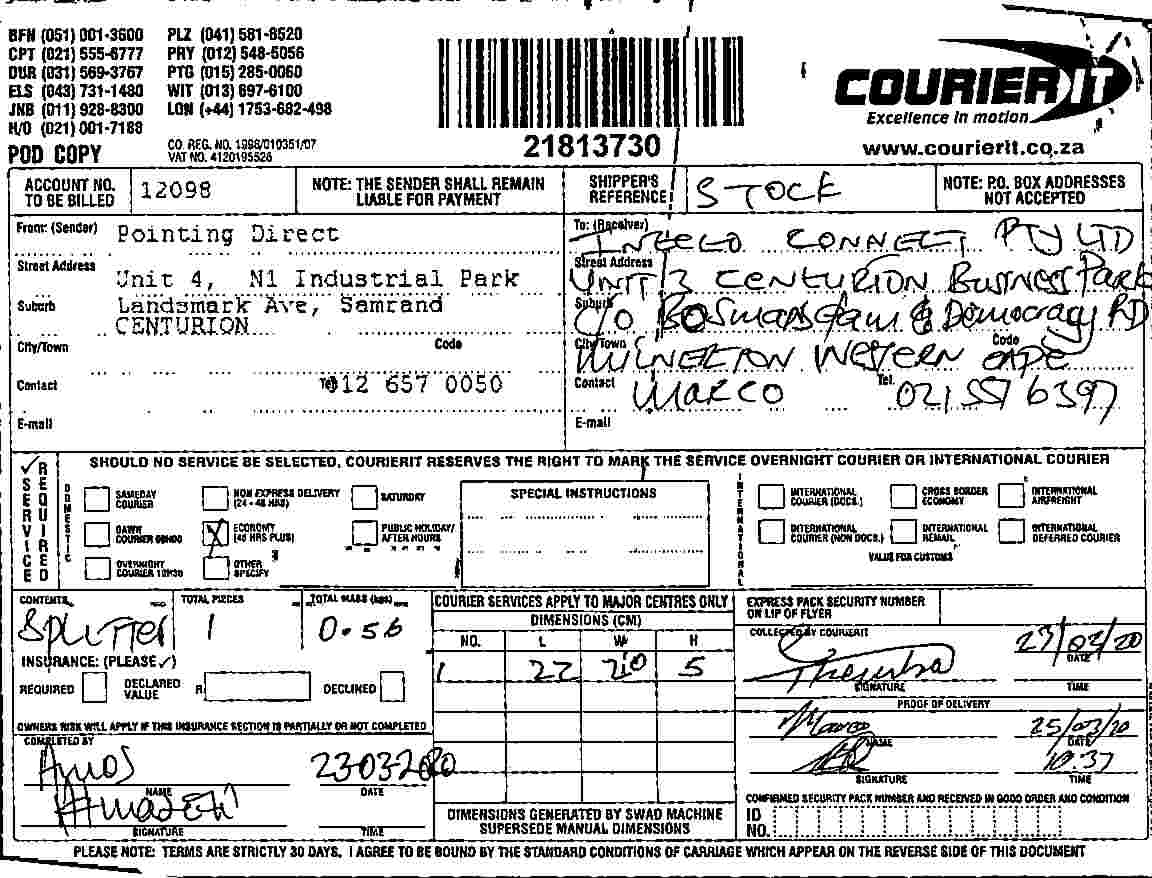 BFN (051) 001-3600 PLZ (041) 581-8520
CPT (021) 555-6777 PRY (012) 548-5056
DUR (031) 569-3767 PTG (015) 285-0060
ELS (043) 731-1480 WIT (013) 697-6100
JNB (011) 928-8300 LON (+44) 1753-682-498
H/O (021) 001-7188
POD COPY
CO. REG. NO. 1998/010351/07
VAT NO. 4120195526
21813730
COURIER IT
Excellence in motion
www.courierit.co.za
ACCOUNT NO. TO BE BILLED 12098
NOTE: THE SENDER SHALL REMAIN LIABLE FOR PAYMENT
SHIPPER'S REFERENCE STOCK
NOTE: P.O. BOX ADDRESSES NOT ACCEPTED
From: (Sender) Pointing Direct
Street Address Unit 4, N1 Industrial Park
Suburb Landsmark Ave, Samrand
CENTURION
City/Town Code
Contact Tel 012 657 0050
E-mail
To: (Receiver) CONNECT PTY LTD
Street Address UNIT 3 CENTURION Business Park
Suburb C/O Bosmansdam & Democracy RD
City/Town MILNERTON WESTERN CAPE Code
Contact MARCO Tel. 021 557 6397
E-mail
SERVICE REQUIRED
SHOULD NO SERVICE BE SELECTED, COURIERIT RESERVES THE RIGHT TO MARK THE SERVICE OVERNIGHT COURIER OR INTERNATIONAL COURIER
DOMESTIC
SAMEDAY COURIER
NON EXPRESS DELIVERY (24 - 48 HRS)
SATURDAY
DAWN COURIER 09H00
X ECONOMY (48 HRS PLUS)
PUBLIC HOLIDAY/ AFTER HOURS
OVERNIGHT COURIER 10H30
OTHER SPECIFY
SPECIAL INSTRUCTIONS
INTERNATIONAL
INTERNATIONAL COURIER (DOCS.)
CROSS BORDER ECONOMY
INTERNATIONAL AIRFREIGHT
INTERNATIONAL COURIER (NON DOCS.)
INTERNATIONAL REMAIL
INTERNATIONAL DEFERRED COURIER
VALUE FOR CUSTOMS
CONTENTS SPLITTER
TOTAL PIECES 1
TOTAL MASS (kgs) 0.56
INSURANCE: (PLEASE ✓)
REQUIRED DECLARED VALUE R DECLINED
OWNERS RISK WILL APPLY IF THIS INSURANCE SECTION IS PARTIALLY OR NOT COMPLETED
COMPLETED BY
Amos 23032020
NAME DATE
SIGNATURE TIME
COURIER SERVICES APPLY TO MAJOR CENTRES ONLY
DIMENSIONS (CM)
NO. L W H
1 22 20 5
DIMENSIONS GENERATED BY SWAD MACHINE SUPERSEDE MANUAL DIMENSIONS
EXPRESS PACK SECURITY NUMBER ON LIP OF FLYER
COLLECTED BY COURIERIT
23/03/20
DATE
SIGNATURE TIME
PROOF OF DELIVERY
Marco 25/03/20
NAME DATE
10:37
SIGNATURE TIME
CONFIRMED SECURITY PACK NUMBER AND RECEIVED IN GOOD ORDER AND CONDITION
ID NO.
PLEASE NOTE: TERMS ARE STRICTLY 30 DAYS. I AGREE TO BE BOUND BY THE STANDARD CONDITIONS OF CARRIAGE WHICH APPEAR ON THE REVERSE SIDE OF THIS DOCUMENT